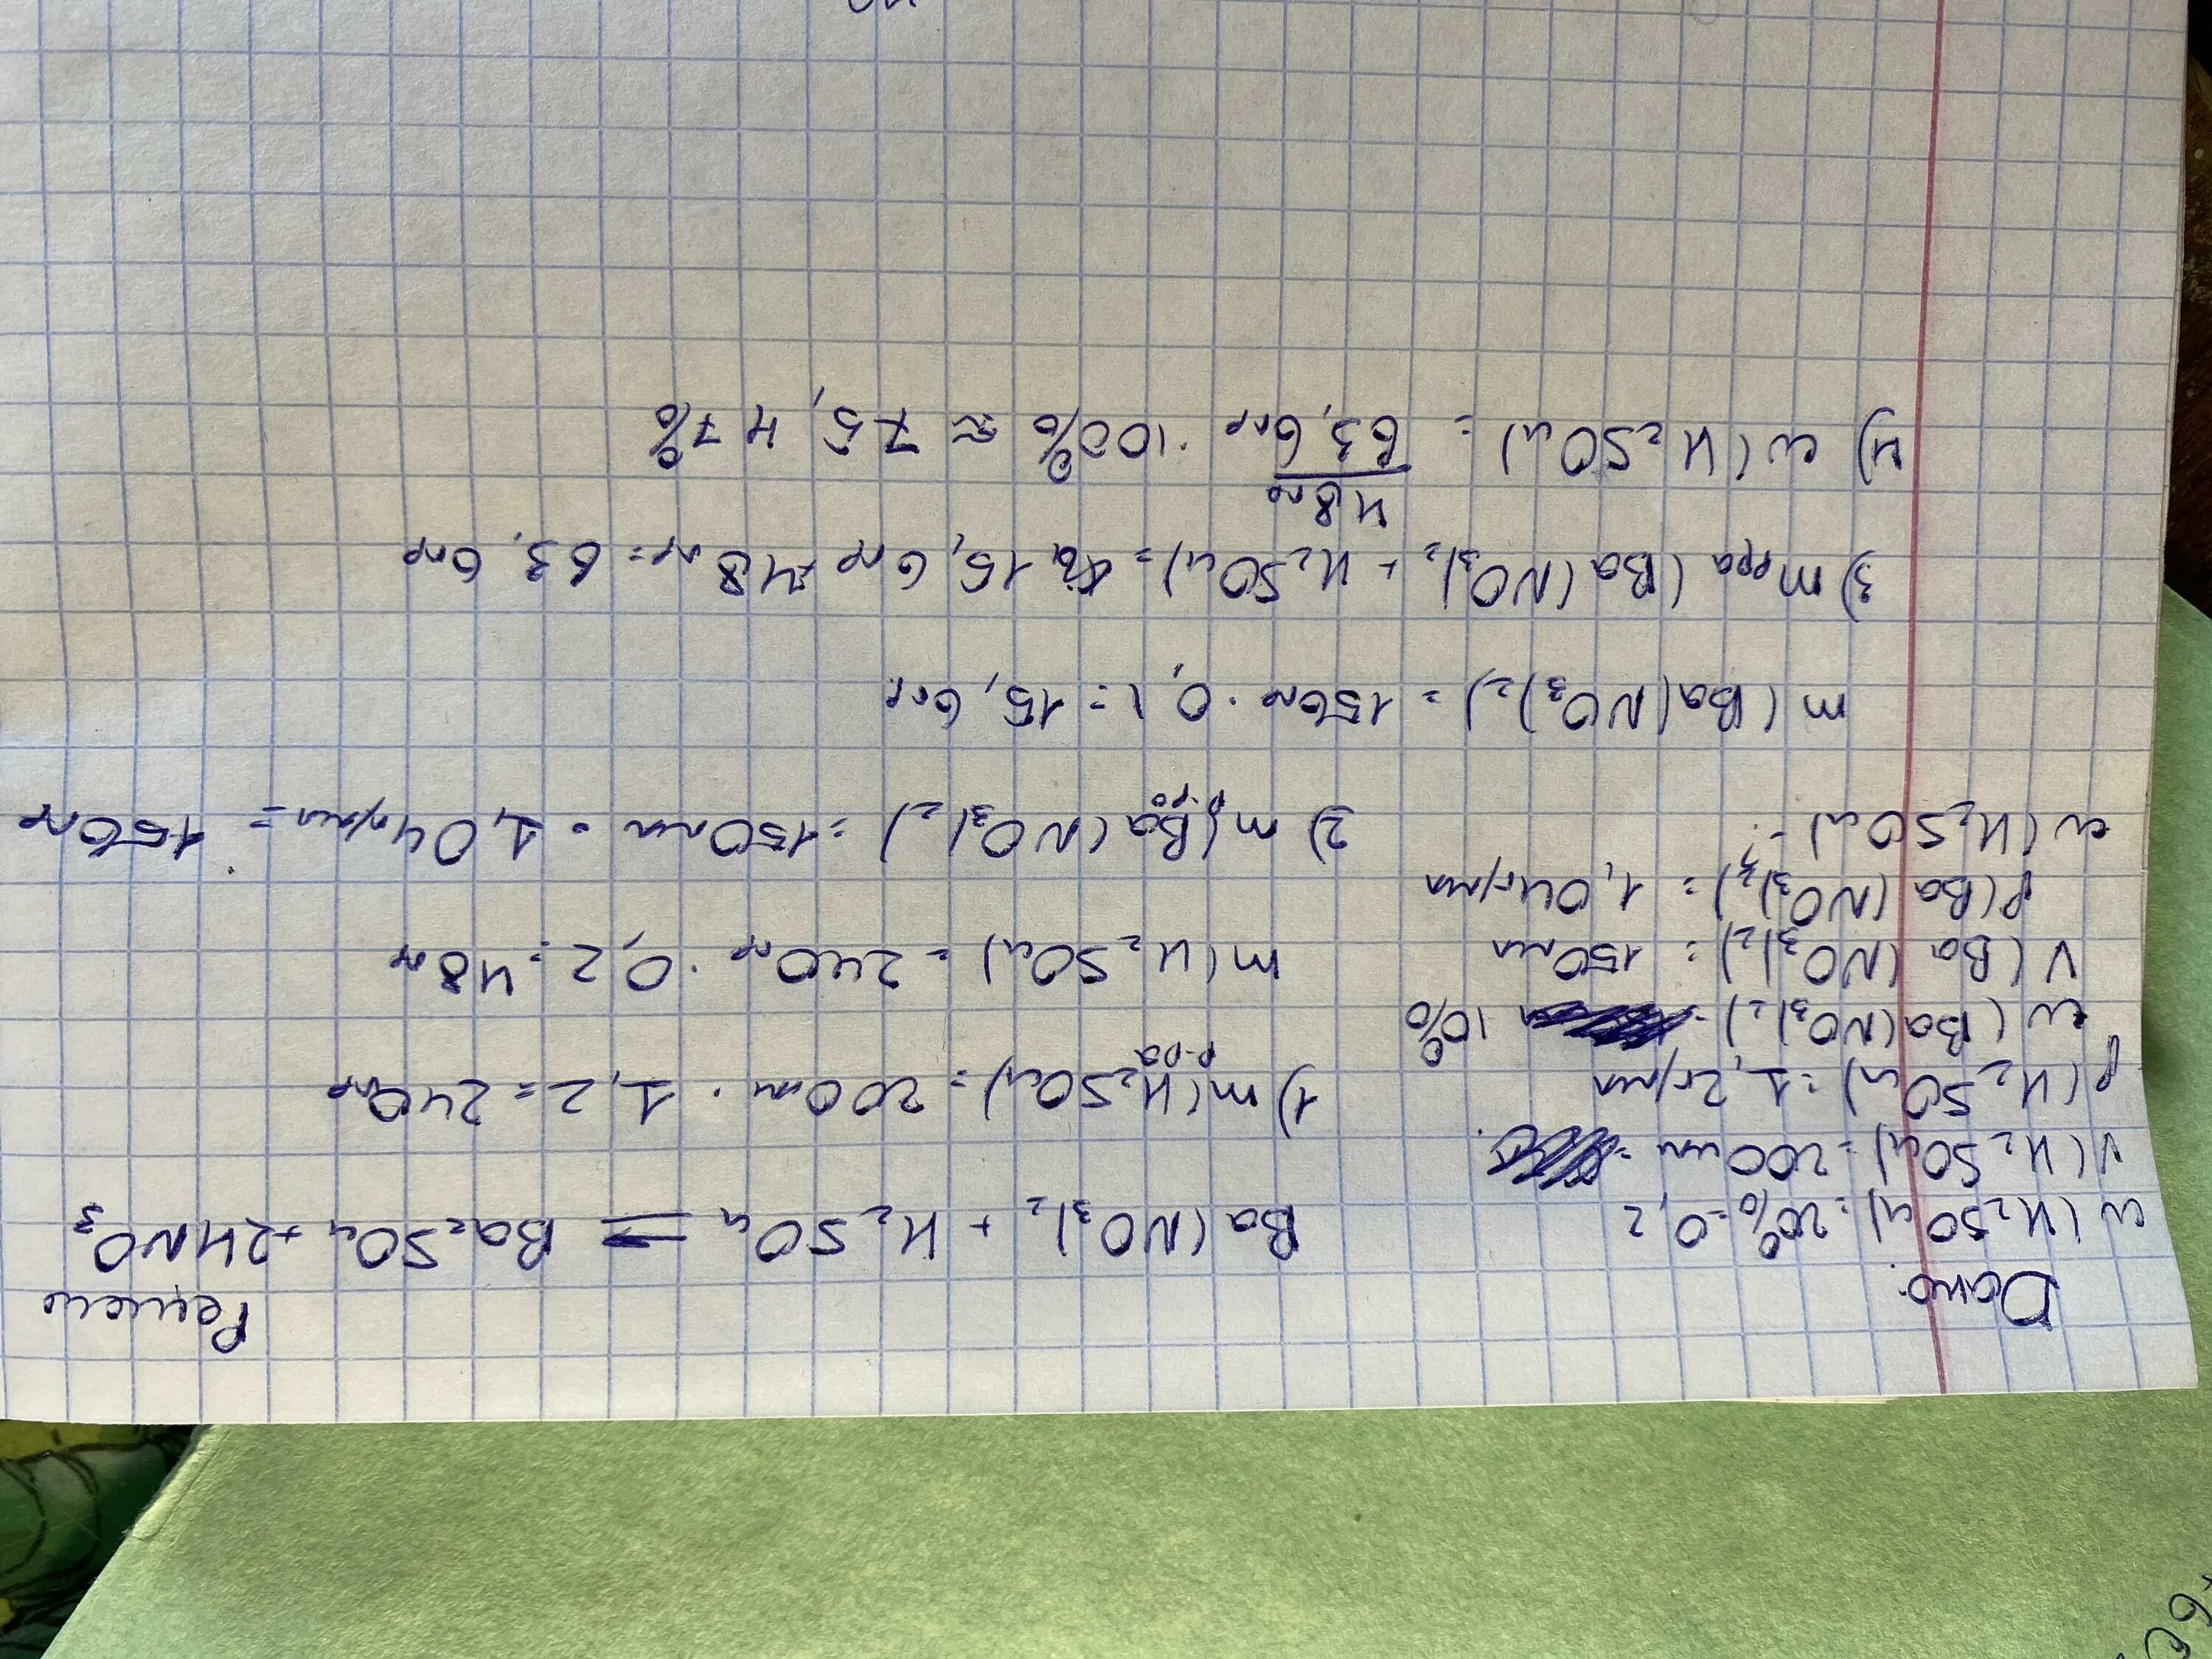 Дано:
Решени
w(H₂SO₄)=20%=0,2
V(H₂SO₄)=200мл=
ρ(H₂SO₄)=1,2г/мл
w(Ba(NO₃)₂)= 10%
V(Ba(NO₃)₂)=150мл
ρ(Ba(NO₃)₂)=1,04г/мл
w(H₂SO₄)-
Ba(NO₃)₂ + H₂SO₄ = Ba₂SO₄ + 2HNO₃
1) m р-ра (H₂SO₄) = 200мл · 1,2 = 240гр
m(H₂SO₄) = 240гр · 0,2 = 48гр
2) m р-ра (Ba(NO₃)₂) = 150мл · 1,04г/мл = 156гр
m(Ba(NO₃)₂) = 156гр · 0,1 = 15,6гр
3) m рра (Ba(NO₃)₂ + H₂SO₄) = 15,6гр + 48гр = 63,6гр
4) w(H₂SO₄) = 48гр / 63,6гр · 100% ≈ 75,47%